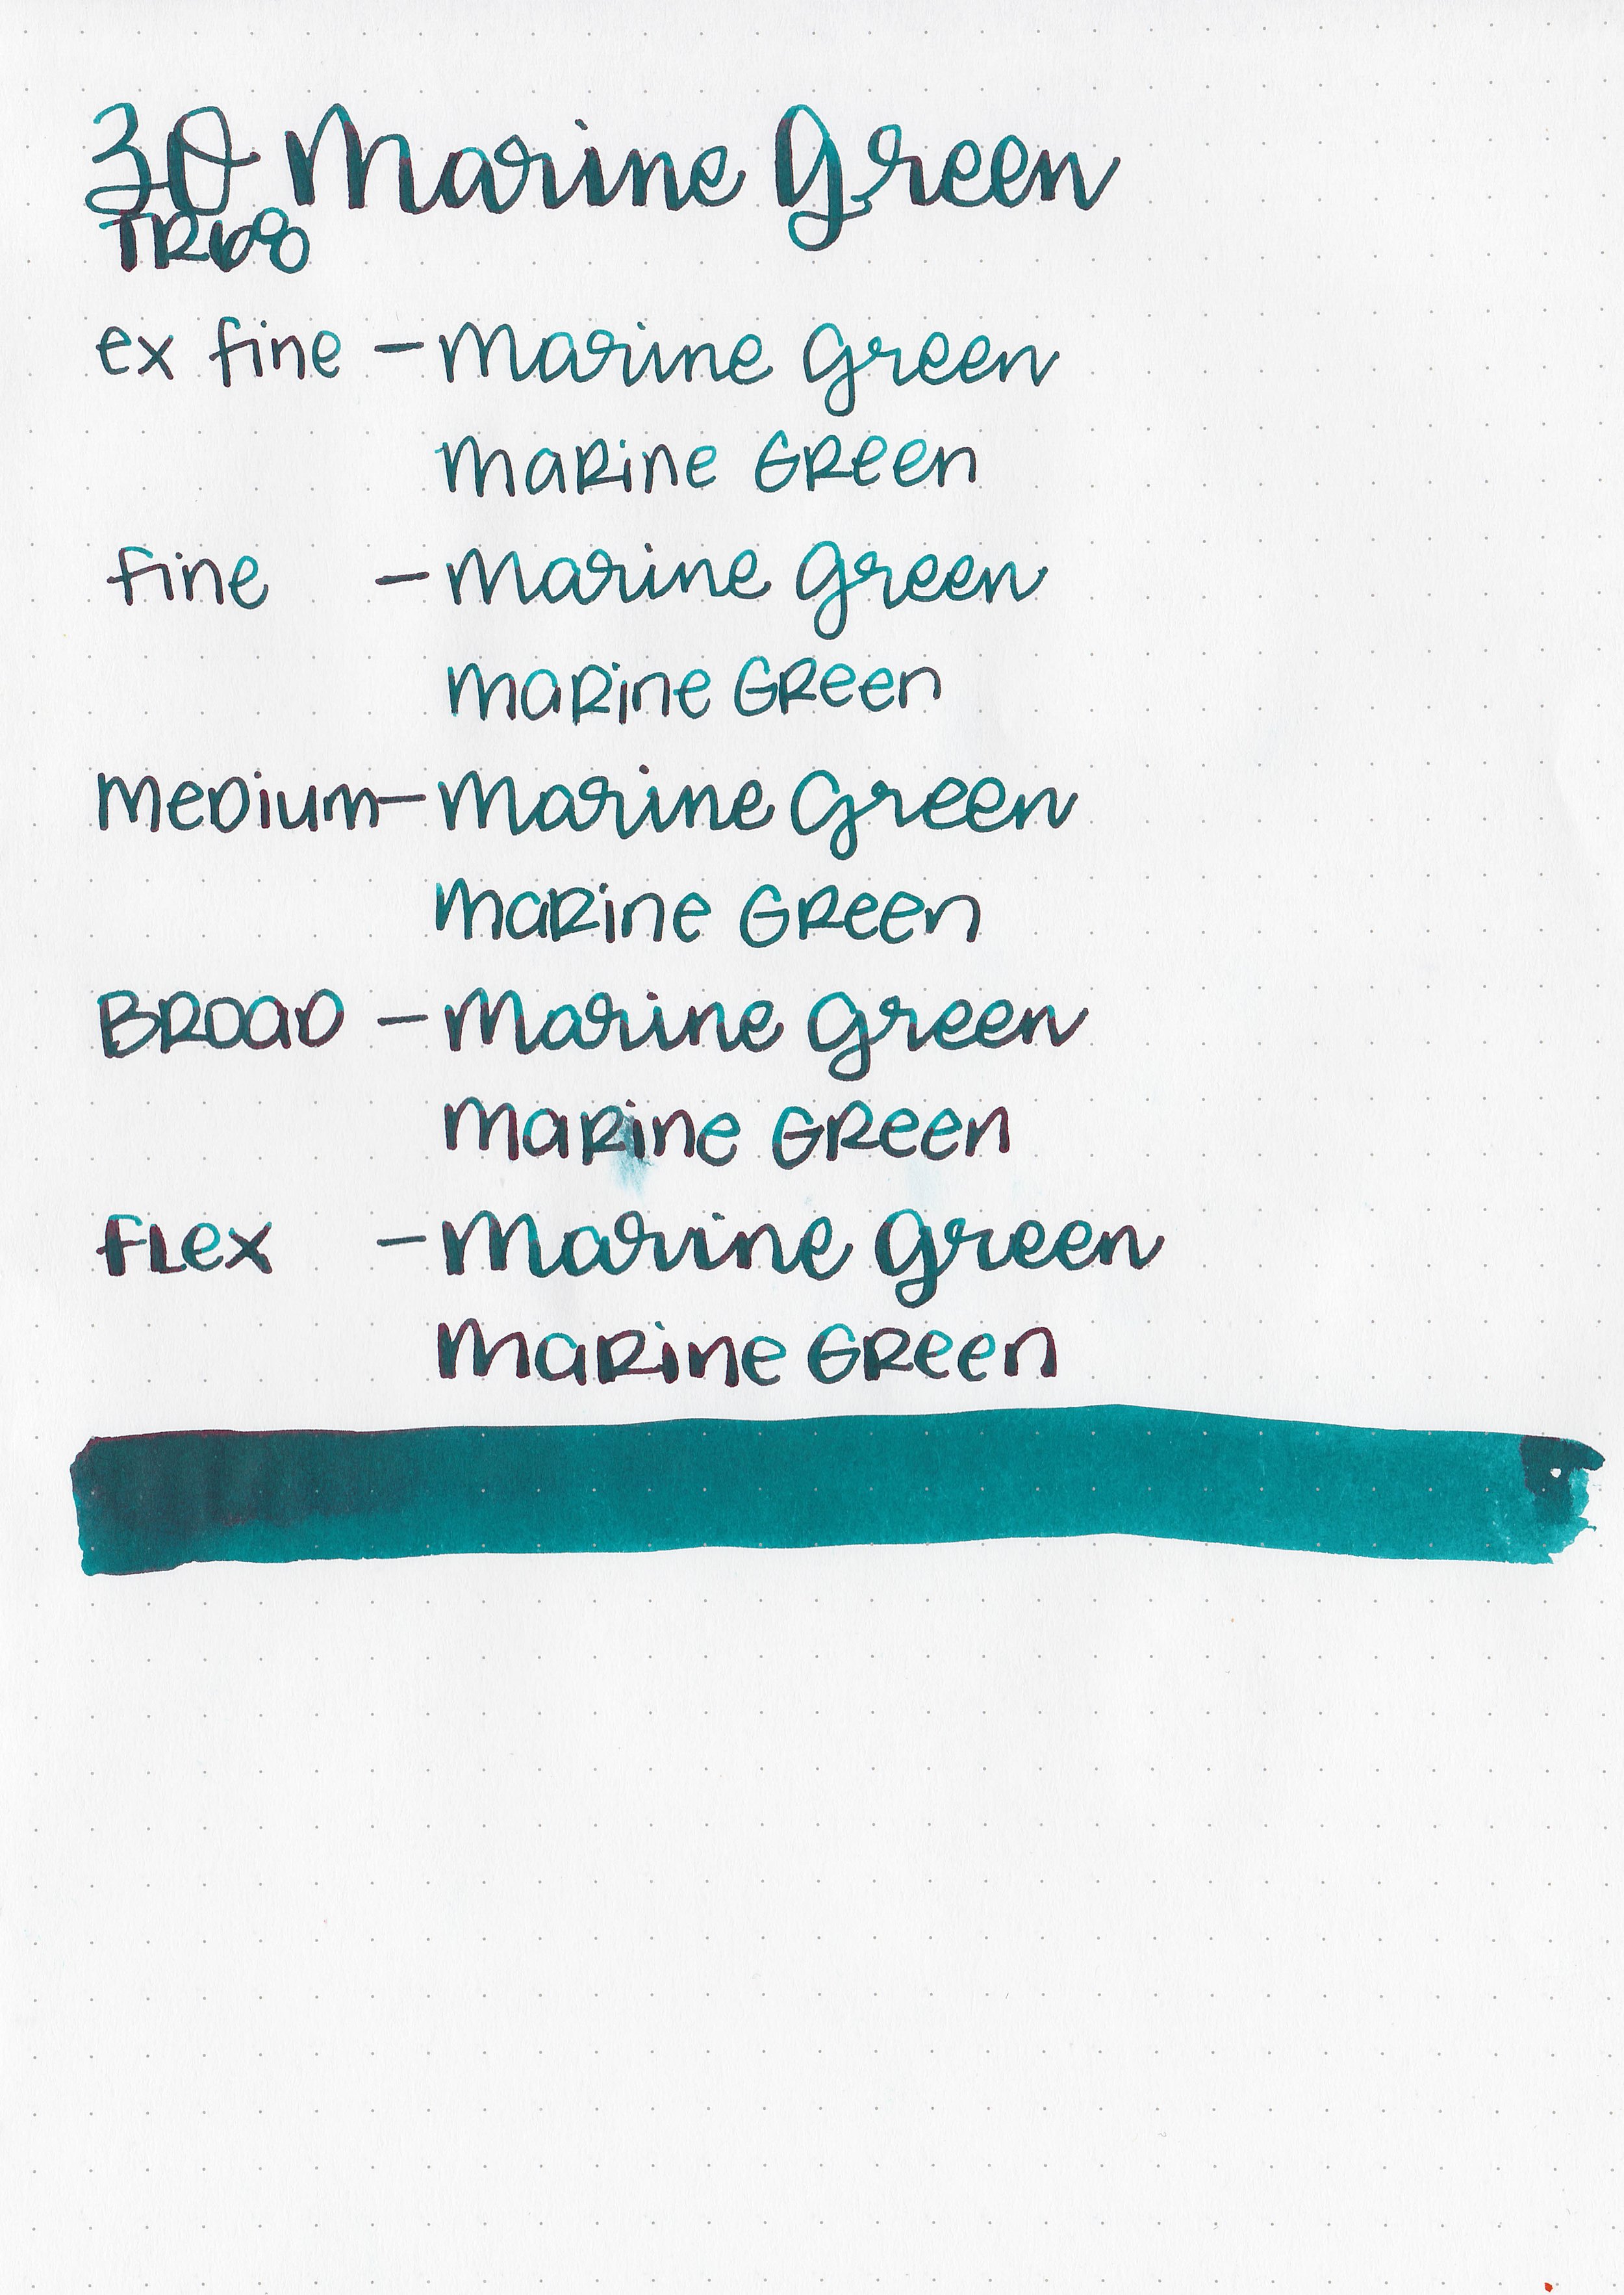 30 Marine Green
TR68
ex fine - Marine Green
Marine Green
fine - Marine Green
Marine Green
Medium - Marine Green
Marine Green
Broad - Marine Green
Marine Green
Flex - Marine Green
Marine Green